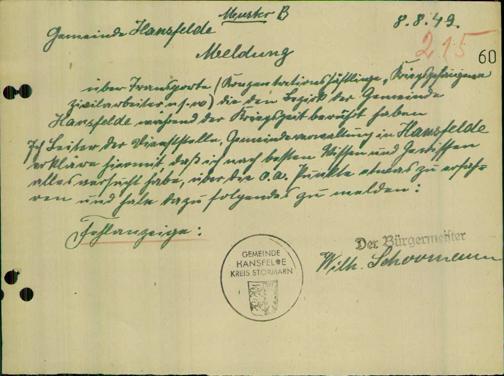 Muster B
Gemeinde Hansfelde
8.8.49.
215
60
Meldung
über Transporte (Konzentrationshäftlinge, Kriegsgefangene
Zivilarbeiter u.s.w) die den Bezirk der Gemeinde
Hansfelde während der Kriegszeit berührt haben
Ich Leiter der Dienststelle, Gemeindeverwaltung in Hansfelde
erkläre hiermit, daß ich nach besten Wissen und Gewissen
alles versucht habe, über die o.a. Punkte etwas zu erfah-
ren und habe dazu folgendes zu melden:
Fehlanzeige:
GEMEINDE
HANSFELDE
KREIS STORMARN
Der Bürgermeister
Wilh. Schoomann